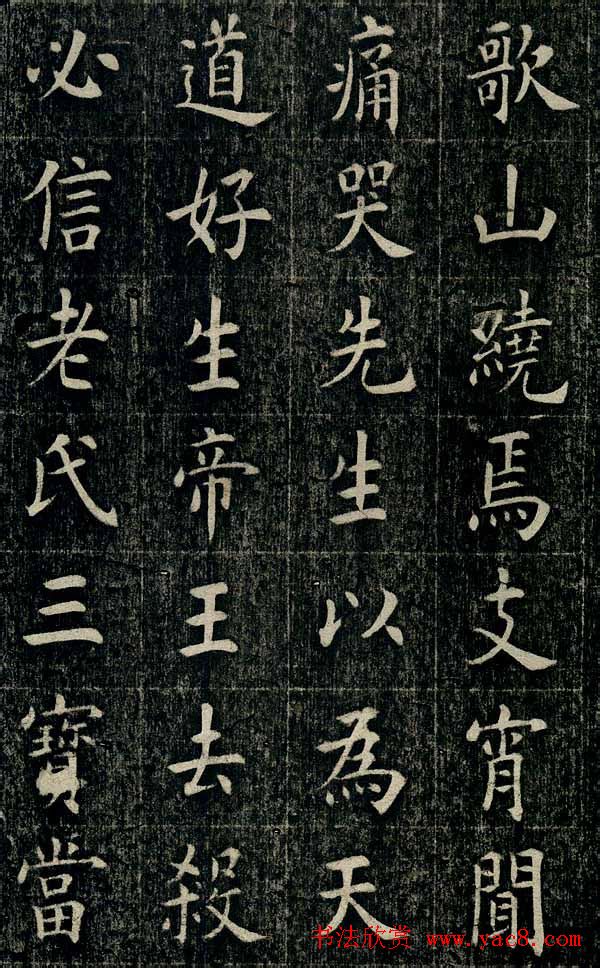 歌山繞焉支宵聞
痛哭先生以為天
道好生帝王去殺
必信老氏三寶當
书法欣赏 www.yac8.com